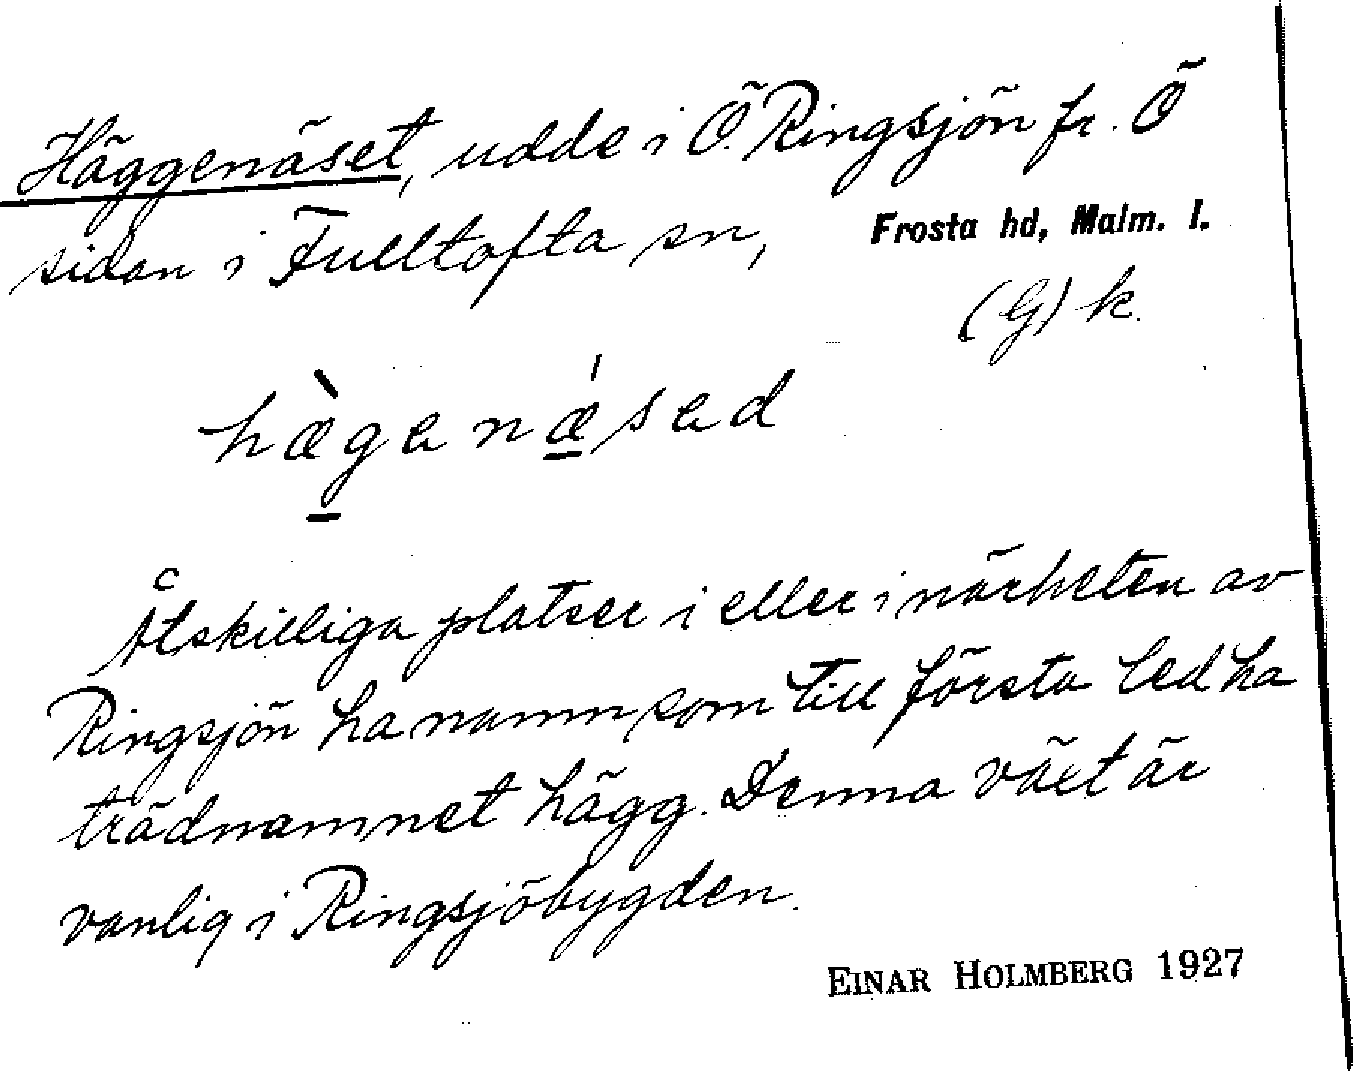 Häggenäset, udde i Ö. Ringsjön fr. Ö
sidan i Fulltofta sn, Frosta hd, Malm. l.
(G) k.
hæ̀genǽsed
Åtskilliga platser i eller i närheten av
Ringsjön ha namn som till första led ha
trädnamnet hägg. Denna växt är
vanlig i Ringsjöbygden.
EINAR HOLMBERG 1927